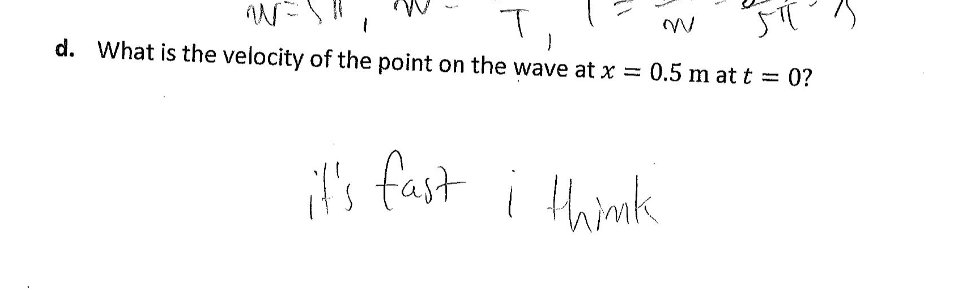 d. What is the velocity of the point on the wave at x = 0.5 m at t = 0?
it's fast i think